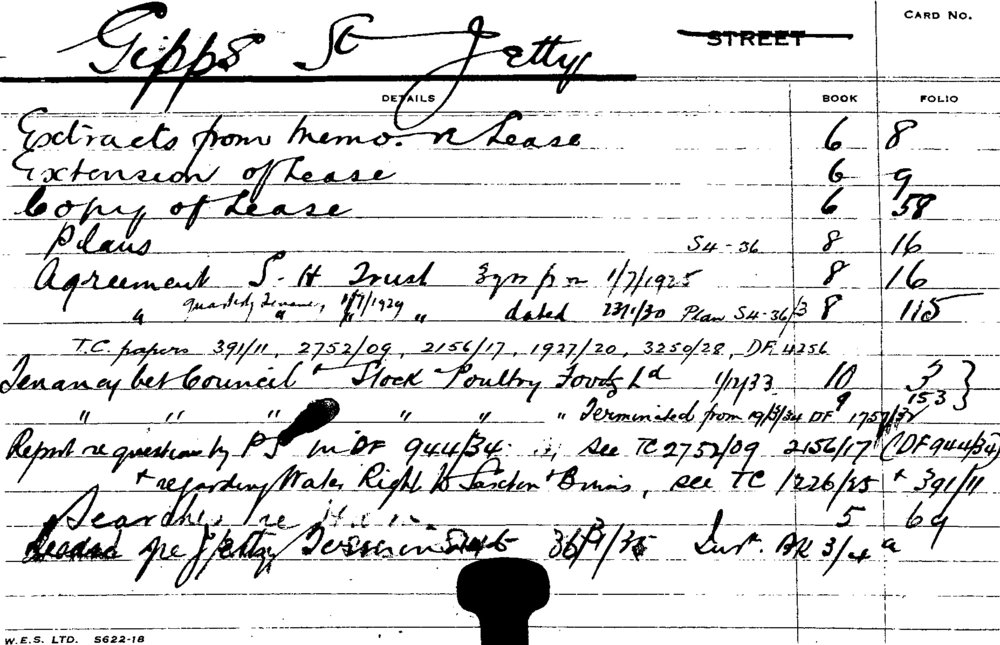 Gipps St Jetty
STREET
CARD No.
DETAILS BOOK FOLIO
Extracts from Memo. re Lease 6 8
Extension of Lease 6 9
Copy of Lease 6 58
Plans S4-36 8 16
Agreement S. H Trust 3yrs from 1/7/1925 8 16
" quarterly Tenancy 1/7/1929 " dated Plan S4-36/3 8 115
T.C. papers 391/11, 2752/09, 2156/17, 1927/20, 3250/28, DF 4256
Tenancy bet Council + Stock + Poultry Foods Ld 1/12/33 10 3
" " " " " " Terminated from DF 1757/32 9 153
Report re questions by PS in DF 944/34 see TC 2752/09 2156/17 (DF 944/34)
+ regarding Water Right to Saxton + Binns, see TC 1226/25 + 391/11
Searches re 5 69
re Jetty
W.E.S. LTD. S622-18